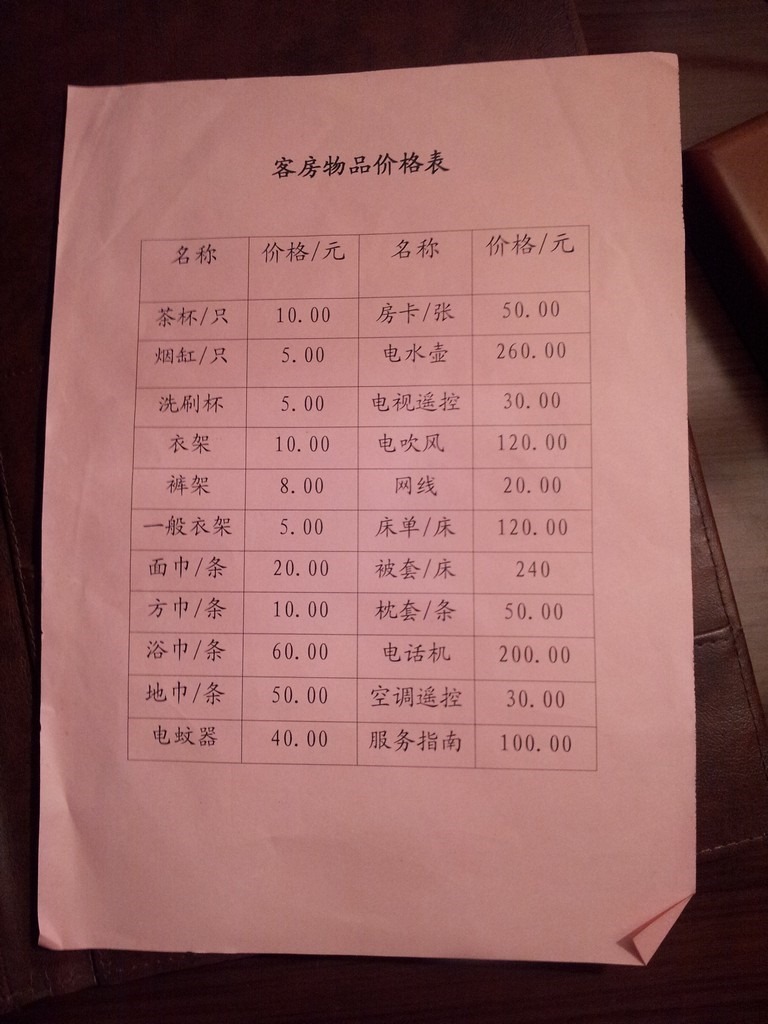 客房物品价格表
名称 价格/元 名称 价格/元
茶杯/只 10.00 房卡/张 50.00
烟缸/只 5.00 电水壶 260.00
洗刷杯 5.00 电视遥控 30.00
衣架 10.00 电吹风 120.00
裤架 8.00 网线 20.00
一般衣架 5.00 床单/床 120.00
面巾/条 20.00 被套/床 240
方巾/条 10.00 枕套/条 50.00
浴巾/条 60.00 电话机 200.00
地巾/条 50.00 空调遥控 30.00
电蚊器 40.00 服务指南 100.00